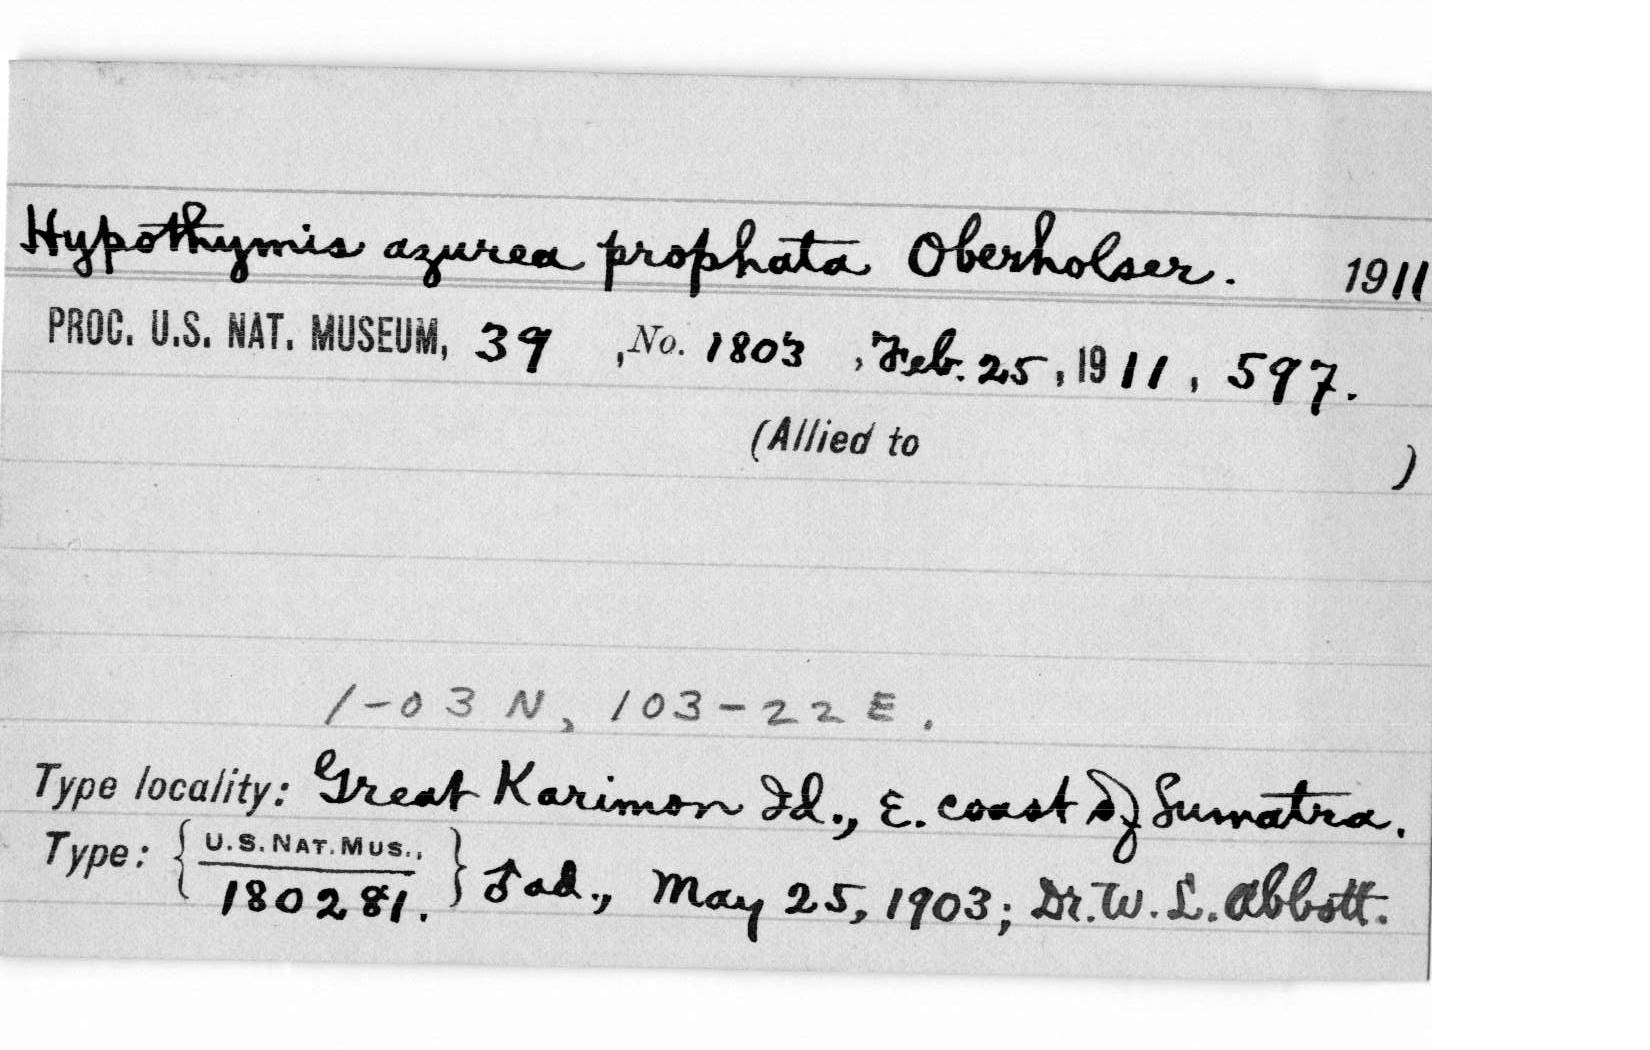 Hypothymis azurea prophata Oberholser. 1911
PROC. U.S. NAT. MUSEUM, 39, No. 1803, Feb. 25, 1911, 597.
(Allied to )
1-03 N, 103-22 E.
Type locality: Great Karimon Id., E. coast of Sumatra.
Type: { U.S. NAT. MUS., 180281. } ♂ ad., May 25, 1903; Dr. W. L. Abbott.